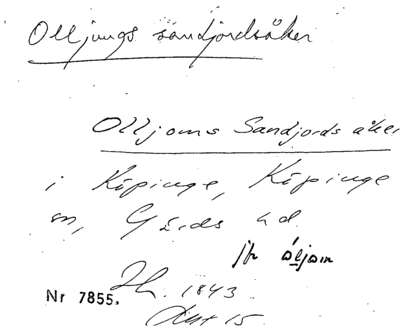 Olljungs sandjordsåker
Olljoms Sandjords åker
i Köpinge, Köpinge
sn, Gärds hd.
jfr öljom
1843
Nr 7855.
15